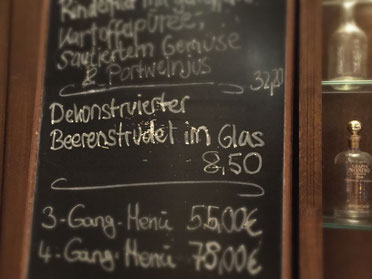 Rinderfilet mit
Kartoffelpüree,
sautiertem Gemüse
& Portweinjus
32,20
Dekonstruierter
Beerenstrudel im Glas
8,50
3-Gang-Menü 55,00€
4-Gang-Menü 78,00€